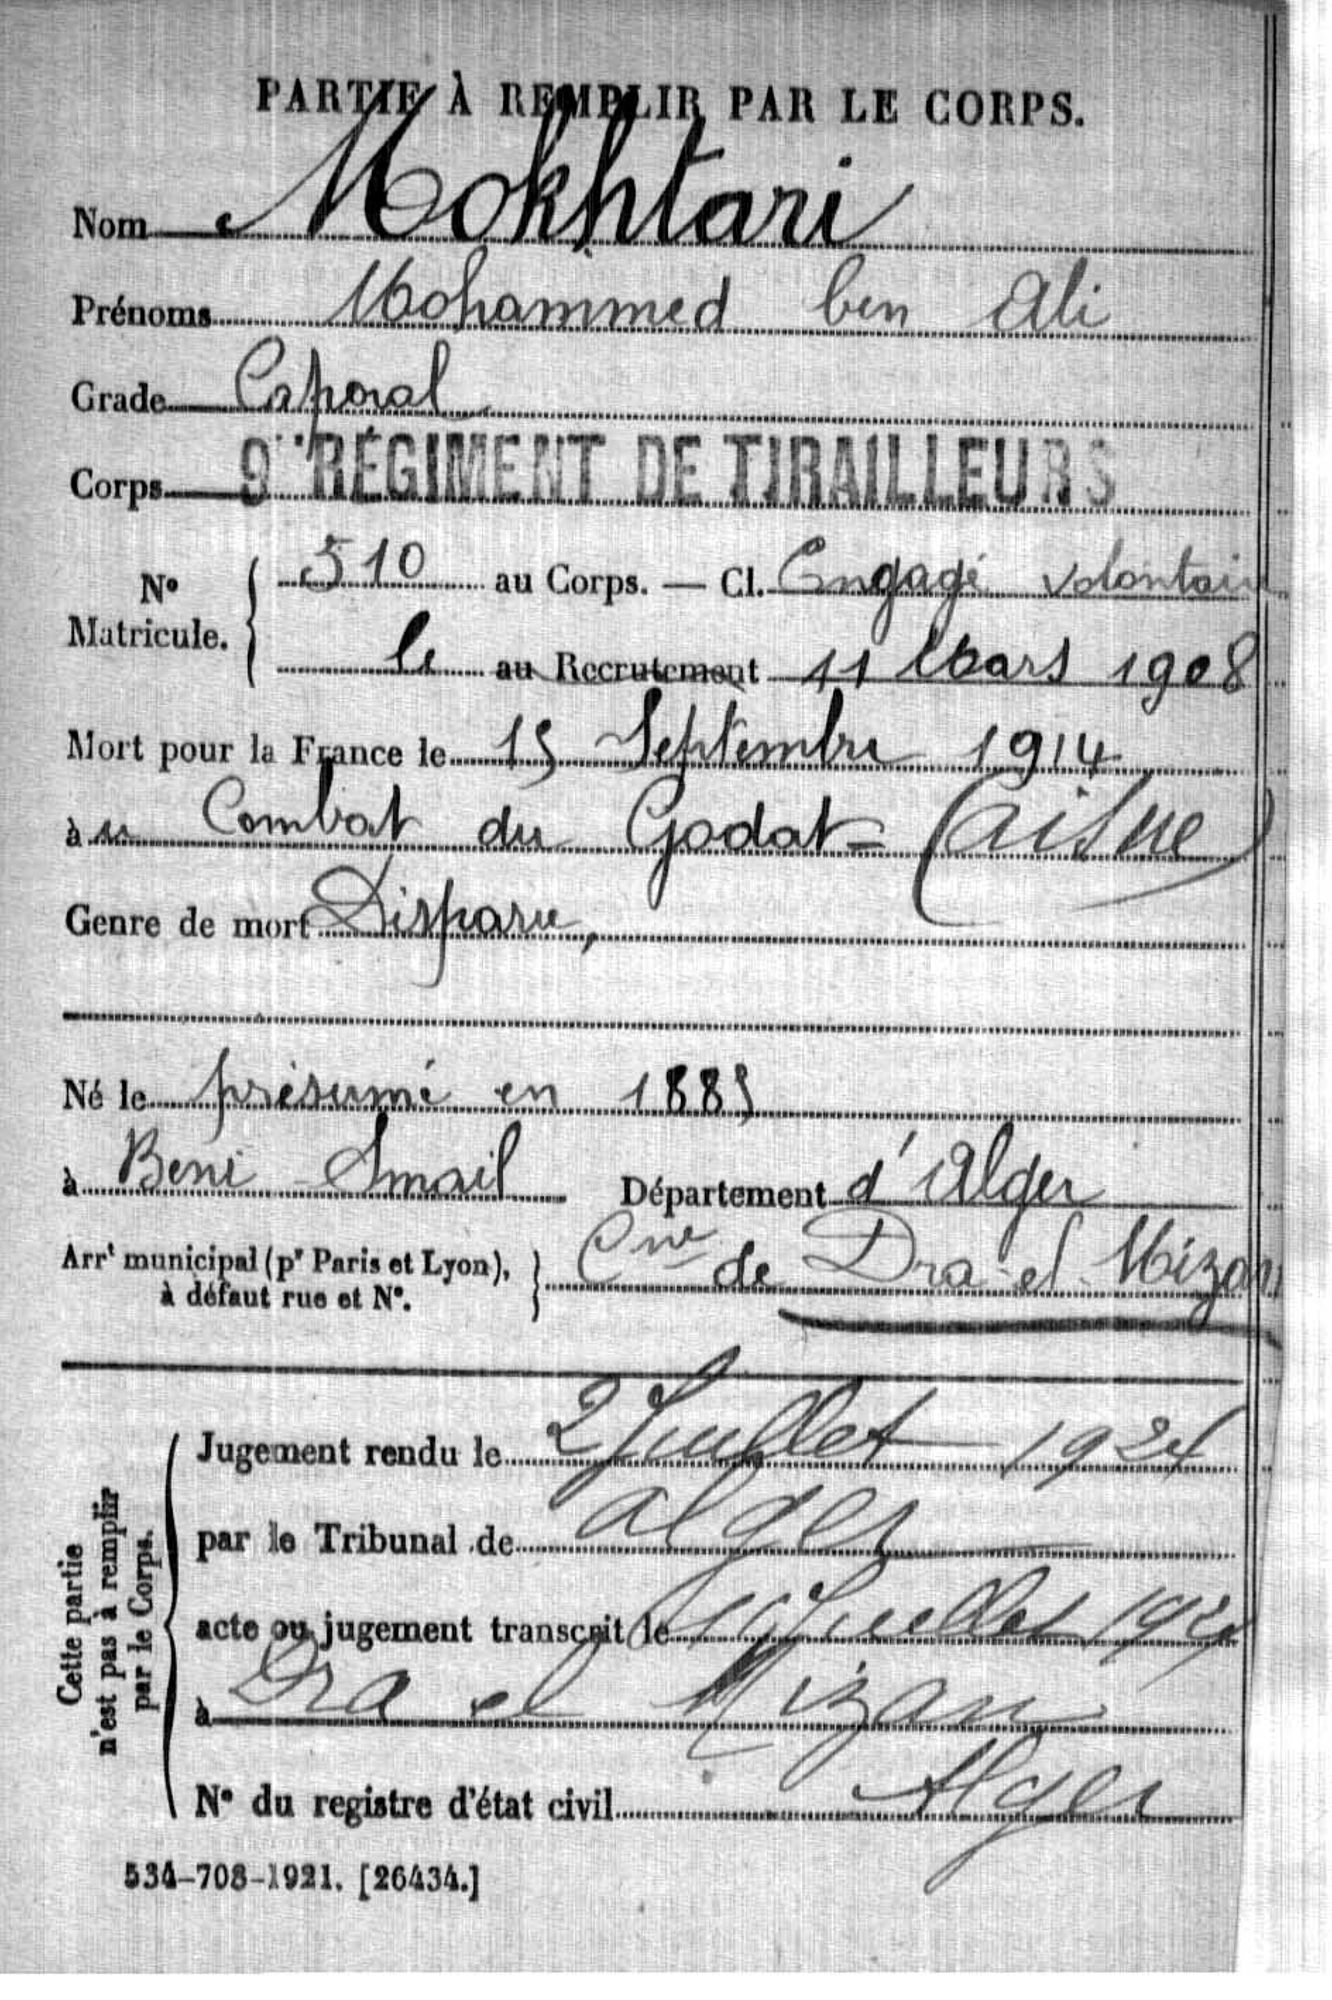 PARTIE À REMPLIR PAR LE CORPS.
Nom Mokhtari
Prénoms Mohammed ben Ali
Grade Caporal
Corps 9e RÉGIMENT DE TIRAILLEURS
No Matricule. 510 au Corps. — Cl. Engagé volontaire
le au Recrutement 11 Mars 1908
Mort pour la France le 15 Septembre 1914
à u Combat du Godat = (Aisne)
Genre de mort Disparu,
Né le présumé en 1885
à Beni Smail Département d'Alger
Arrt municipal (pr Paris et Lyon), à défaut rue et No. Cne de Dra el Mizan
Cette partie n'est pas à remplir par le Corps.
Jugement rendu le 2 Juillet 1921
par le Tribunal de Alger
acte ou jugement transcrit le Juillet 1921
à Dra el Mizan
No du registre d'état civil Alger
534-708-1921. [26434.]